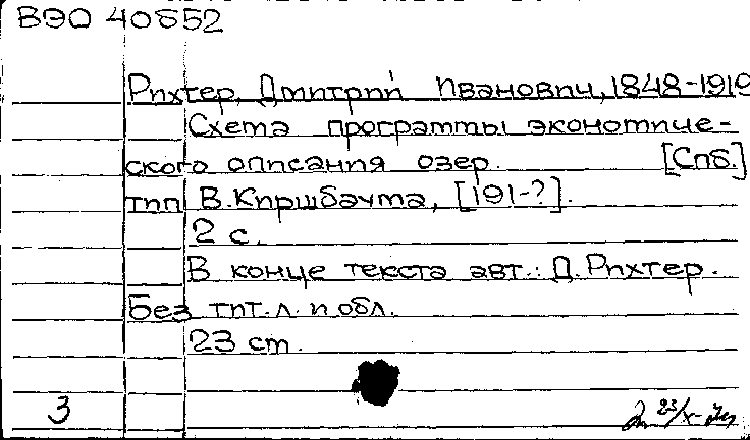 ВЭО 40852
Рихтер, Дмитрий Иванович, 1848-1919
Схема программы экономиче-
ского описания озер. [Спб.]
тип В. Киршбаума, [191-?].
2 с.
В конце текста авт.: Д. Рихтер.
Без тит. л. и обл.
23 см.
3